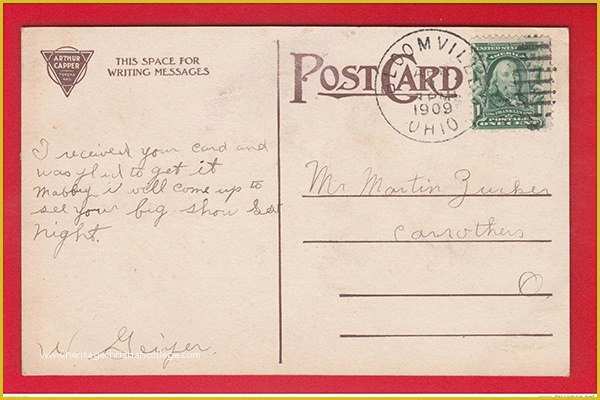 ARTHUR
CAPPER
TOPEKA
KAN.
THIS SPACE FOR
WRITING MESSAGES
POST CARD
LOOMVIL
1909
OHIO
UNITED STATES
AMERICA
FRANKLIN
POSTAGE
ONE CENT
I received your card and
was glad to get it
mabby i will come up to
see your big show Sat
night.
W. Geiyer.
Mr Martin Zucker
Carrothers
O